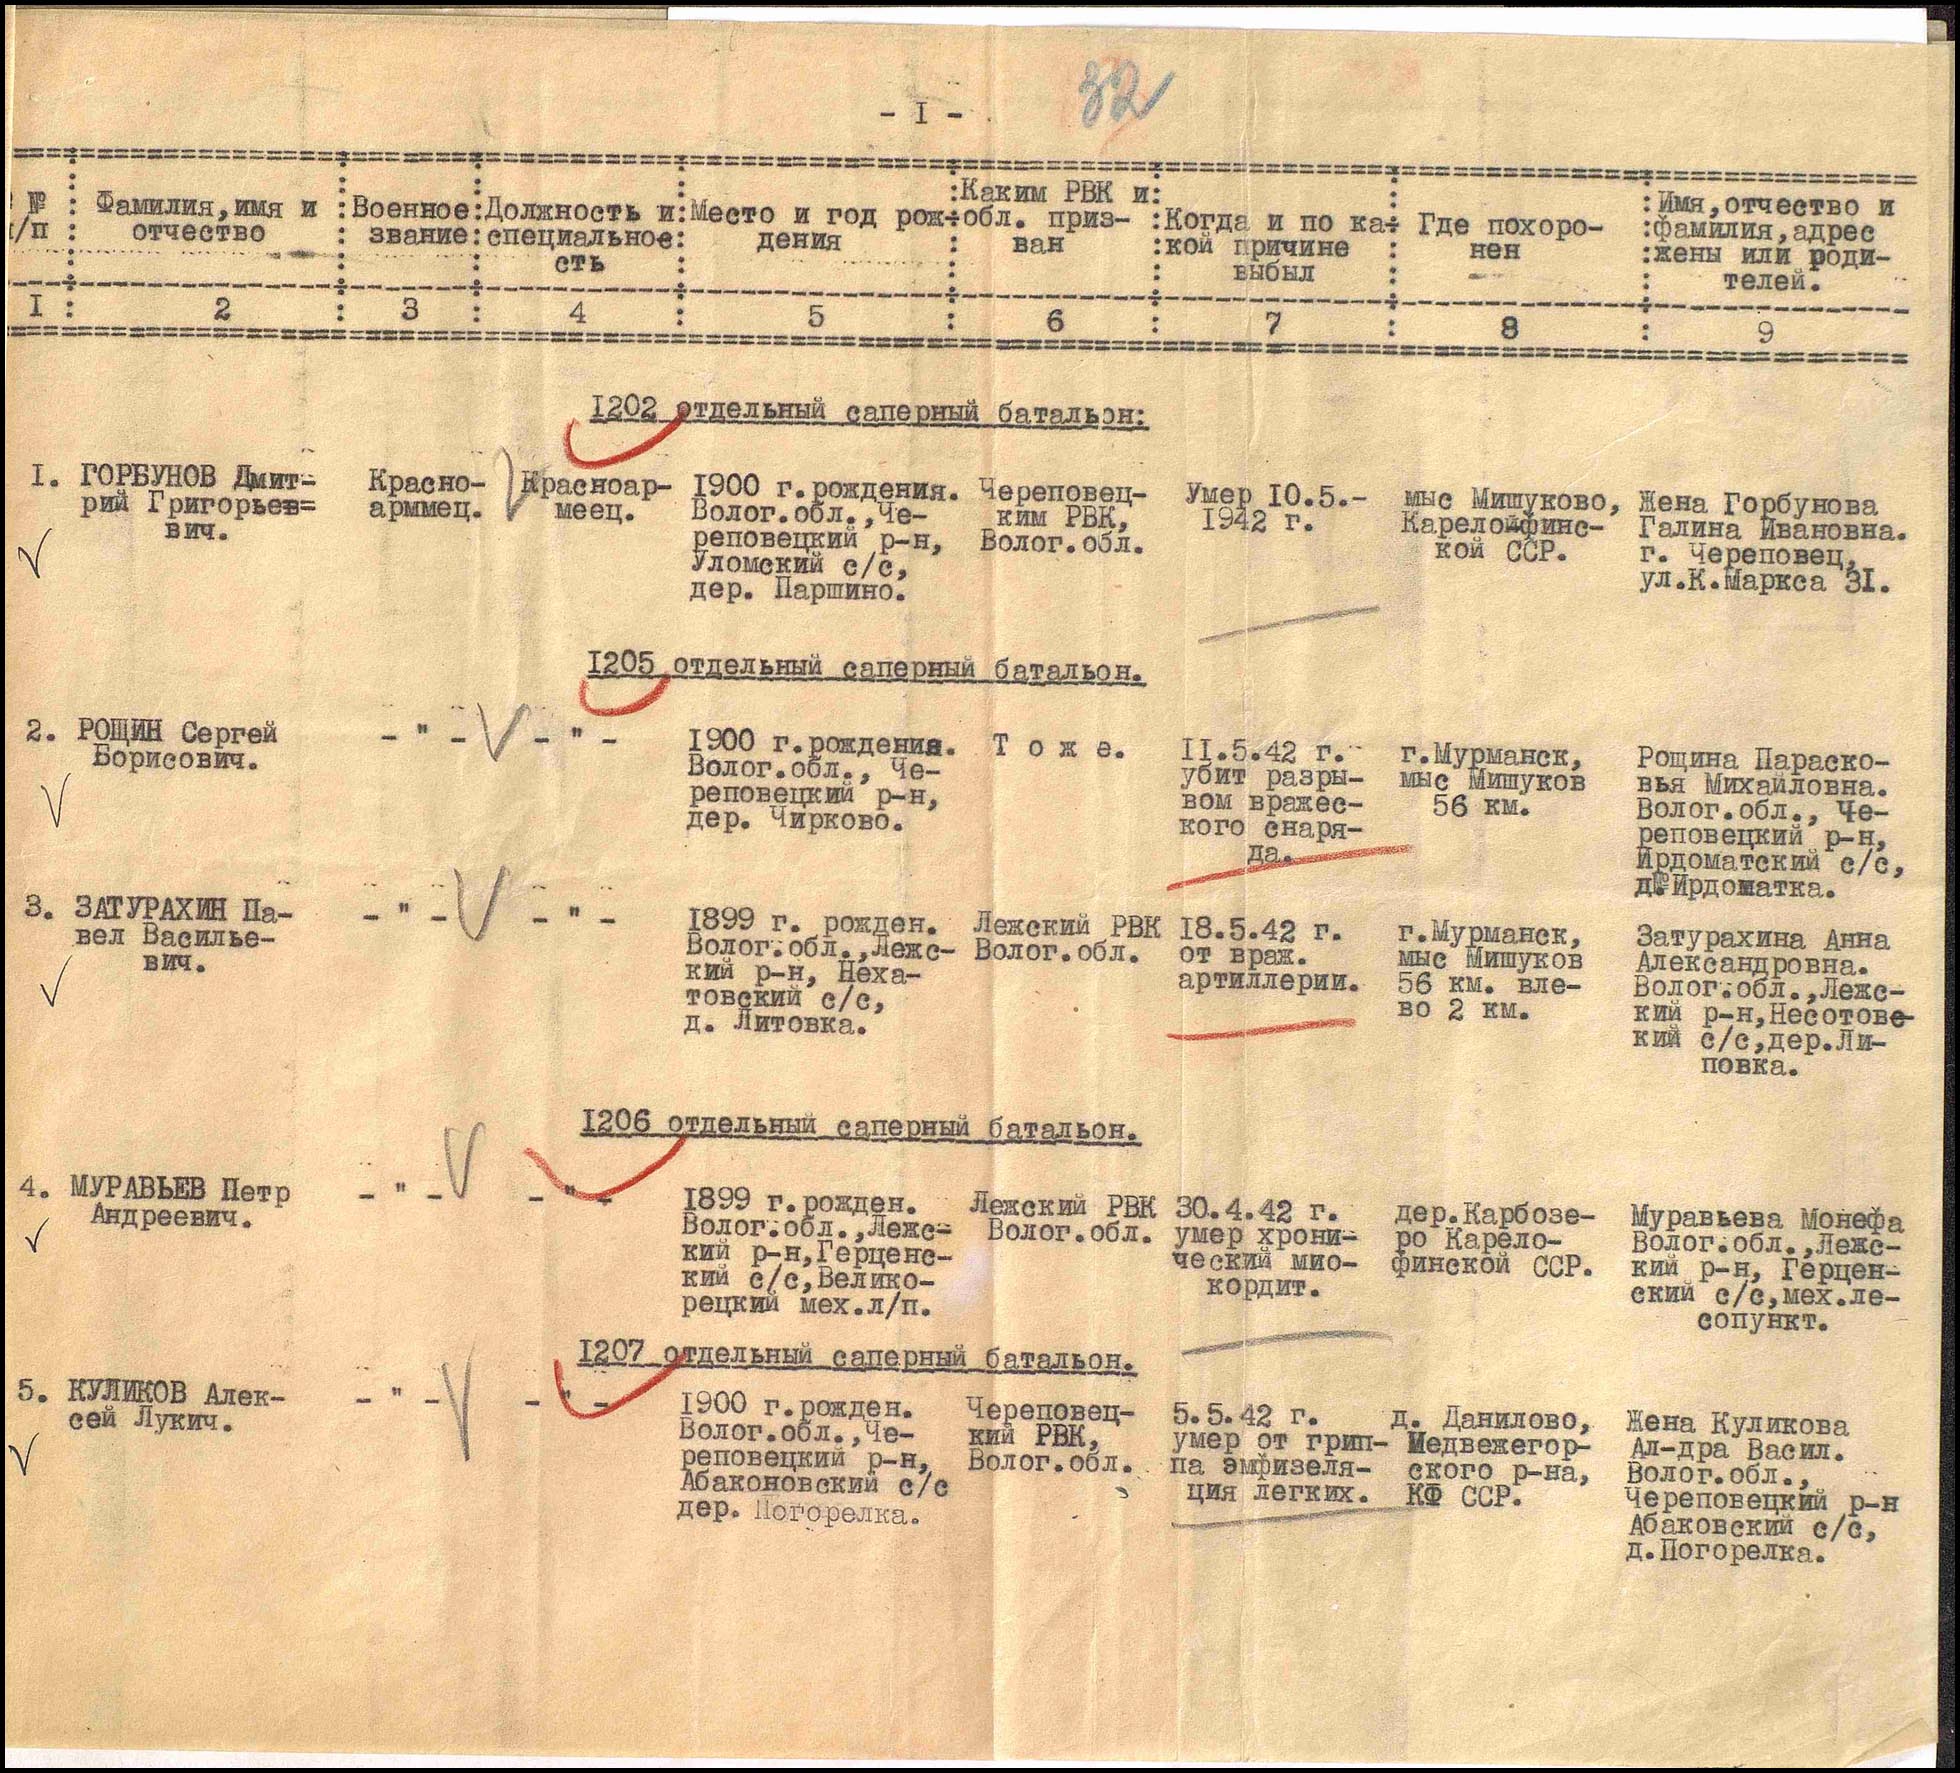 - I -
32
№ п/п : Фамилия,имя и отчество : Военное звание : Должность и специальное: сть : Место и год рож- дения : Каким РВК и обл. приз- ван : Когда и по ка- кой причине выбыл : Где похоро- нен : Имя,отчество и фамилия,адрес жены или роди- телей.
I : 2 : 3 : 4 : 5 : 6 : 7 : 8 : 9
I202 отдельный саперный батальон:
I. ГОРБУНОВ Дмит=
рий Григорьев=
вич.
Красно-
арммец.
Красноар-
меец.
I900 г.рождения.
Волог.обл.,Че-
реповецкий р-н,
Уломский с/с,
дер. Паршино.
Череповец-
ким РВК,
Волог.обл.
Умер I0.5.-
I942 г.
мыс Мишуково,
Карелойфинс-
кой ССР.
Жена Горбунова
Галина Ивановна.
г. Череповец,
ул.К.Маркса 3I.
I205 отдельный саперный батальон.
2. РОЩИН Сергей
Борисович.
- " -
- " -
I900 г.рождения.
Волог.обл., Че-
реповецкий р-н,
дер. Чирково.
Т о ж е.
II.5.42 г.
убит разры-
вом вражес-
кого снаря-
да.
г.Мурманск,
мыс Мишуков
56 км.
Рощина Параско-
вья Михайловна.
Волог.обл., Че-
реповецкий р-н,
Ирдоматский с/с,
д.Ирдоматка.
3. ЗАТУРАХИН Па-
вел Василье-
вич.
- " -
- " -
I899 г. рожден.
Волог.обл.,Лежс-
кий р-н, Неха-
товский с/с,
д. Литовка.
Лежский РВК
Волог.обл.
I8.5.42 г.
от враж.
артиллерии.
г.Мурманск,
мыс Мишуков
56 км. вле-
во 2 км.
Затурахина Анна
Александровна.
Волог.обл.,Лежс-
кий р-н,Несотовс-
кий с/с,дер.Ли-
повка.
I206 отдельный саперный батальон.
4. МУРАВЬЕВ Петр
Андреевич.
- " -
- " -
I899 г.рожден.
Волог.обл.,Лежс=
кий р-н,Герценс-
кий с/с,Велико-
рецкий мех.л/п.
Лежский РВК
Волог.обл.
30.4.42 г.
умер хрони-
ческий мио-
кордит.
дер.Карбозе-
ро Карело-
финской ССР.
Муравьева Монефа
Волог.обл.,Лежс-
кий р-н, Герцен-
ский с/с,мех.ле-
сопункт.
I207 отдельный саперный батальон.
5. КУЛИКОВ Алек-
сей Лукич.
- " -
- " -
I900 г.рожден.
Волог.обл.,Че-
реповецкий р-н,
Абаконовский с/с
дер. Погорелка.
Череповец-
кий РВК,
Волог.обл.
5.5.42 г.
умер от грип-
па эмфизеля-
ция легких.
д. Данилово,
Медвежегор-
ского р-на,
КФ ССР.
Жена Куликова
Ал-дра Васил.
Волог.обл.,
Череповецкий р-н
Абаковский с/с,
д.Погорелка.